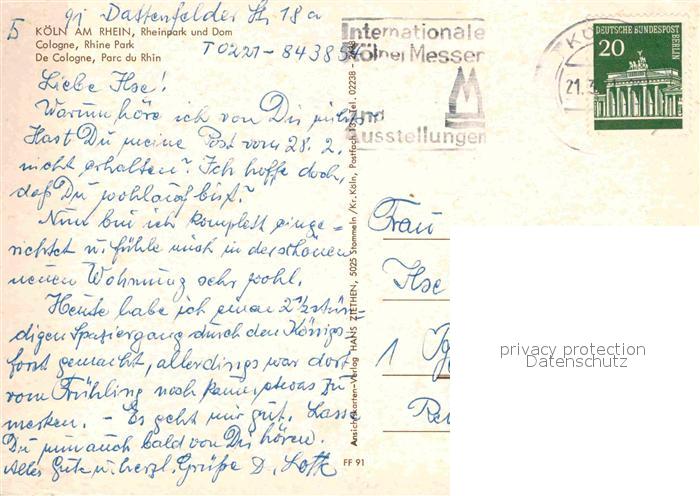 gi Dattenfelder St. 18a
5
KÖLN AM RHEIN, Rheinpark und Dom
Cologne, Rhine Park
De Cologne, Parc du Rhin
T 0221-843854
Liebe Ilse!
Warum höre ich von Dir
Hast Du meine Post vom 28. 2.
nicht erhalten? Ich hoffe doch,
daß Du wohlauf bist?
Nun bin ich komplett einge=
richtet u. fühle mich in der schönen
neuen Wohnung sehr wohl.
Heute habe ich einen 2½ stün-
digen Spaziergang durch den Königs-
forst gemacht, allerdings war dort
vom Frühling noch kaum etwas zu
merken. - Es geht mir gut. Lass
Du nun auch bald von Dir hören.
Alles Gute u. herzl. Grüße D. Lotte
Ansichtskarten-Verlag HANS ZIETHEN, 5025 Stommeln/Kr. Köln, Postfach 13, Tel. 02238 -
FF 91
Internationale
Kölner Messen
und
Ausstellungen
KÖ
21.3
DEUTSCHE BUNDESPOST
BERLIN
20
Frau
Ilse
1
privacy protection
Datenschutz